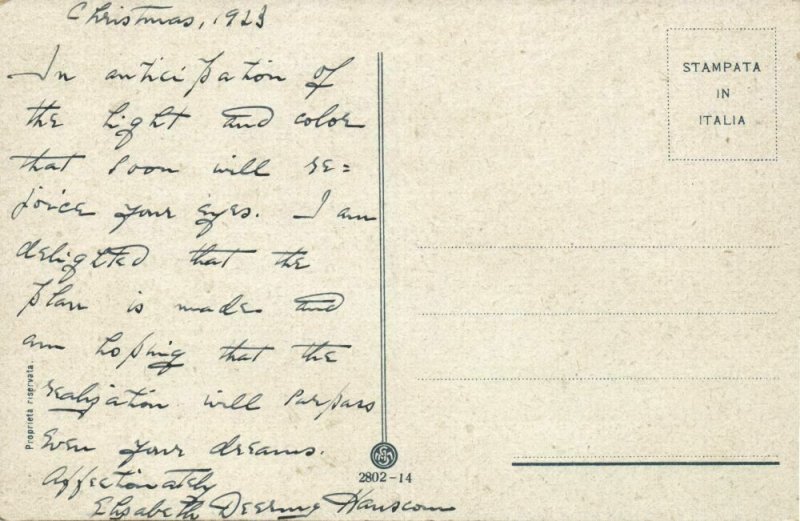 Christmas, 1923
In anticipation of
the light and color
that soon will re=
joice your eyes. I am
delighted that the
plan is made and
am hoping that the
realization will surpass
even your dreams.
Affectionately
Elizabeth Deering Hanscom
Proprieta riservata.
2802-14
STAMPATA
IN
ITALIA